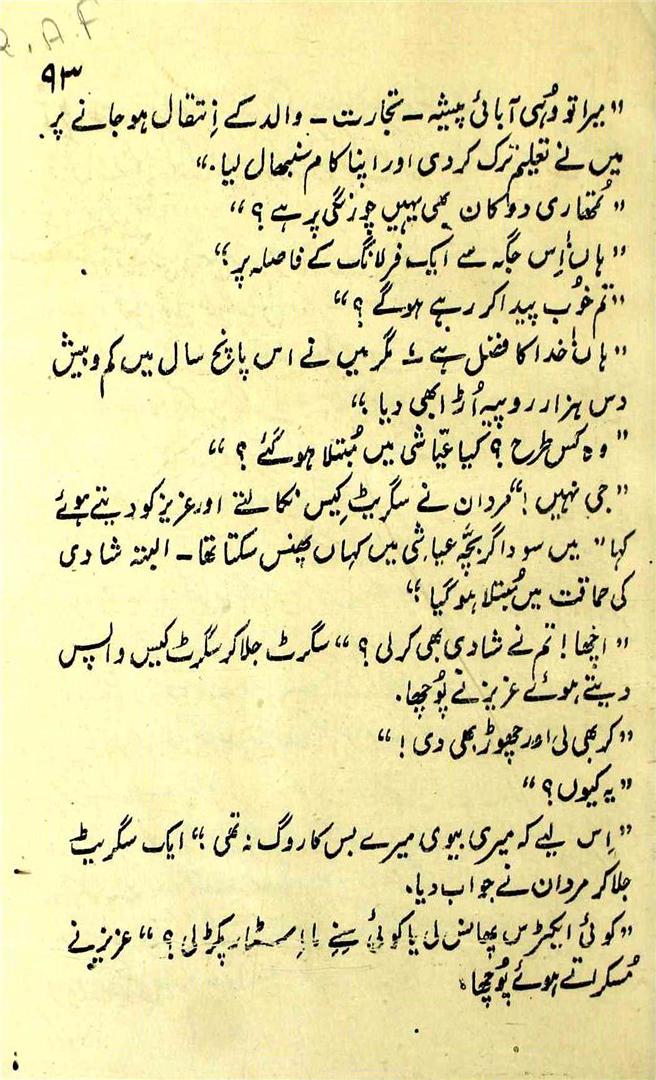 R.A.F
۹۳
"میرا تو وُہی آبائی پیشہ – تجارت – والد کے اِنتقال ہو جانے پر
میں نے تعلیم ترک کر دی اور اپنا کام سنبھال لیا۔"
"تُمھاری دوکان بھی یہیں چورنگی پر ہے؟"
"ہاں اِس جگہ سے ایک فرلانگ کے فاصلہ پر؛"
"تم خوُب پیدا کر رہے ہو گے؟"
"ہاں خدا کا فضل ہے۔ مگر میں نے اس پانچ سال میں کم و بیش
دس ہزار روپیہ اُڑا بھی دیا؛"
"وہ کس طرح؟ کیا عیّاشی میں مُبتلا ہو گئے؟"
"جی نہیں!" مردان نے سگریٹ کیس نکالتے اور عزیز کو دیتے ہوئے
کہا "میں سوداگر بچّہ عیاشی میں کہاں پھنس سکتا تھا – البتہ شادی
کی حماقت میں مُبتلا ہو گیا؛"
"اچھا! تم نے شادی بھی کر لی؟" سگرٹ جلا کر سگرٹ کیس واپس
دیتے ہوئے عزیز نے پوُچھا۔
"کر بھی لی اور چھوڑ بھی دی!"
"یہ کیوں؟"
"اِس لیے کہ میری بیوی میرے بس کا روگ نہ تھی؛" ایک سگریٹ
جلا کر مردان نے جواب دیا۔
"کوئی ایکٹرس پھانس لی یا کوئی سِنے ما اِسٹار پکڑ لی؟" عزیز نے
مُسکراتے ہوئے پوُچھا۔